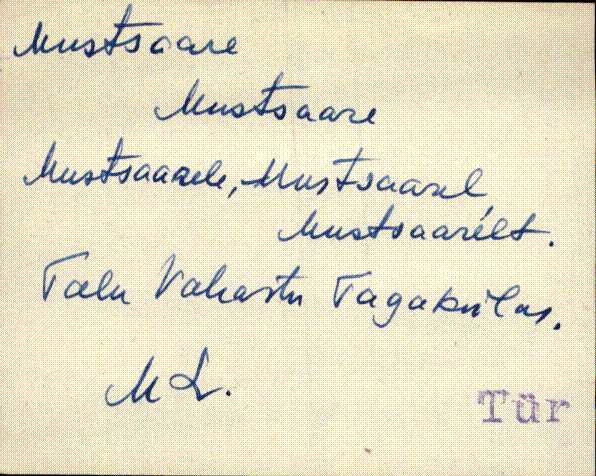 Mustsaare
Mustsaare
Mustsaarele, Mustsaarel,
Mustsaarelt.
Talu Vahastu Tagakülas.
M L.
Tür